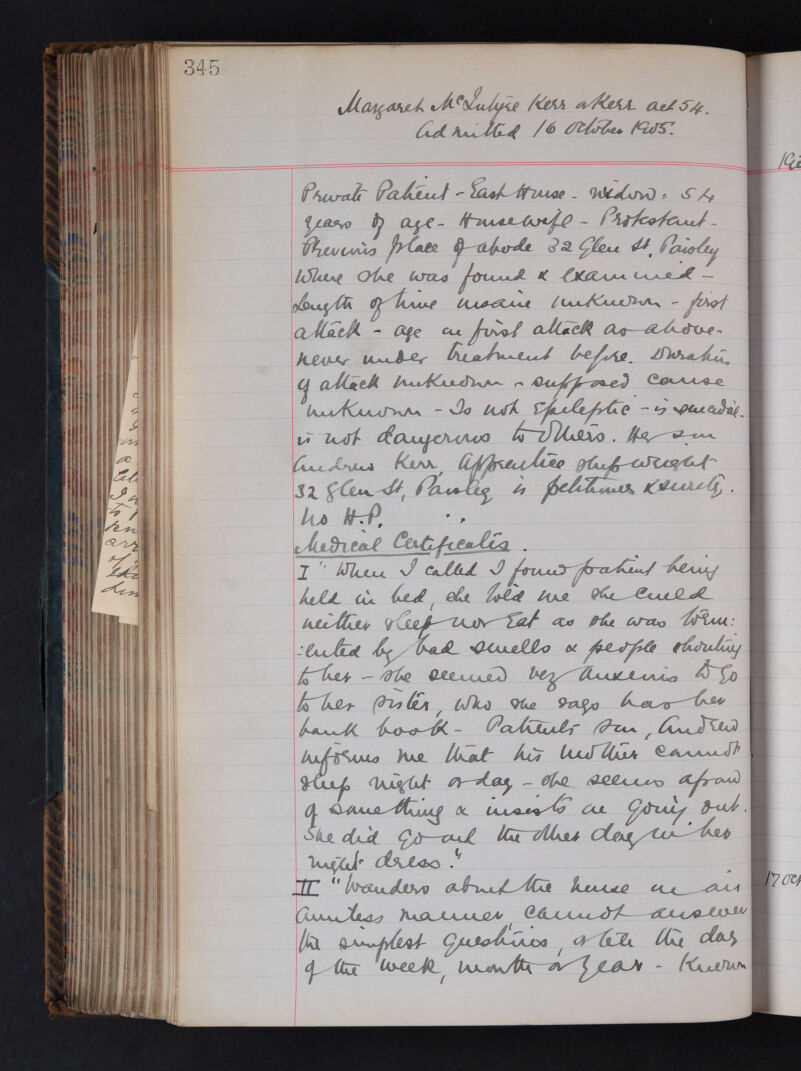 345
Margaret McIntyre Kerr or Kerr aet 54.
Admitted 16 October 1905.
Private Patient - East House - Widow: 54
years of age - Housewife - Protestant -
Previous place of abode 32 Glen St, Paisley
where she was found & examined -
Length of time insane unknown - first
attack - age on first attack as above -
never under treatment before. Duration
of attack unknown - supposed cause
unknown - Is not Epileptic - is suicidal -
is not dangerous to Others. Her son
Andrew Kerr, Apprentice ship wright
32 Glen St, Paisley is petitioner & surety.
No H.P.
Medical Certificates.
I "When I called I found patient being
held in bed, she told me she could
neither sleep nor Eat as she was torm:
:ented by bad smells & people shouting
to her - she seemed very anxious to go
to her sister, who she says has her
bank book - Patient's son, Andrew
informs me that his mother cannot
sleep night or day - she seems afraid
of something & insists on going out.
She did go out the other day in her
night dress."
II "Wanders about the house in an
aimless manner, cannot answer
the simplest questions, or tell the day
of the week, month or year - Known
a
I
to
of
190
17 Oct